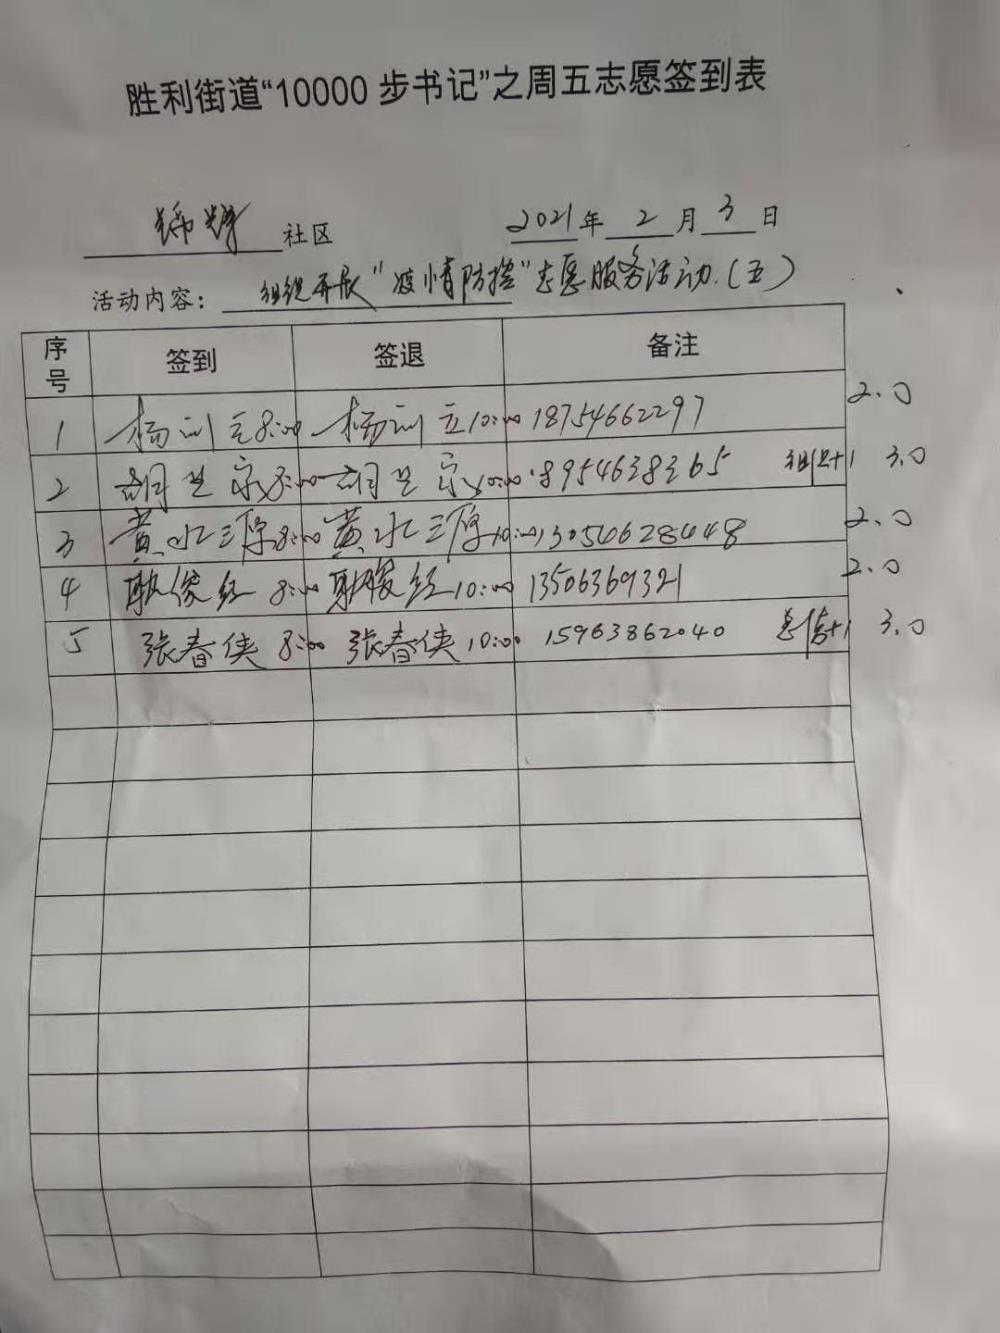 胜利街道“10000 步书记”之周五志愿签到表
锦辉 社区 2021 年 2 月 3 日
活动内容: 组织开展“疫情防控”志愿服务活动.(五)
序号 签到 签退 备注
1 杨训立 8:00 杨训立 10:00 18754662297 2.0
2 胡兰宗 8:00 胡兰宗 10:00 18954638365 组织+1 3.0
3 黄水源 8:00 黄水源 10:00 13054628448 2.0
4 耿俊红 8:00 耿俊红 10:00 13506369321 2.0
5 张春侠 8:00 张春侠 10:00 15963862040 +1 3.0